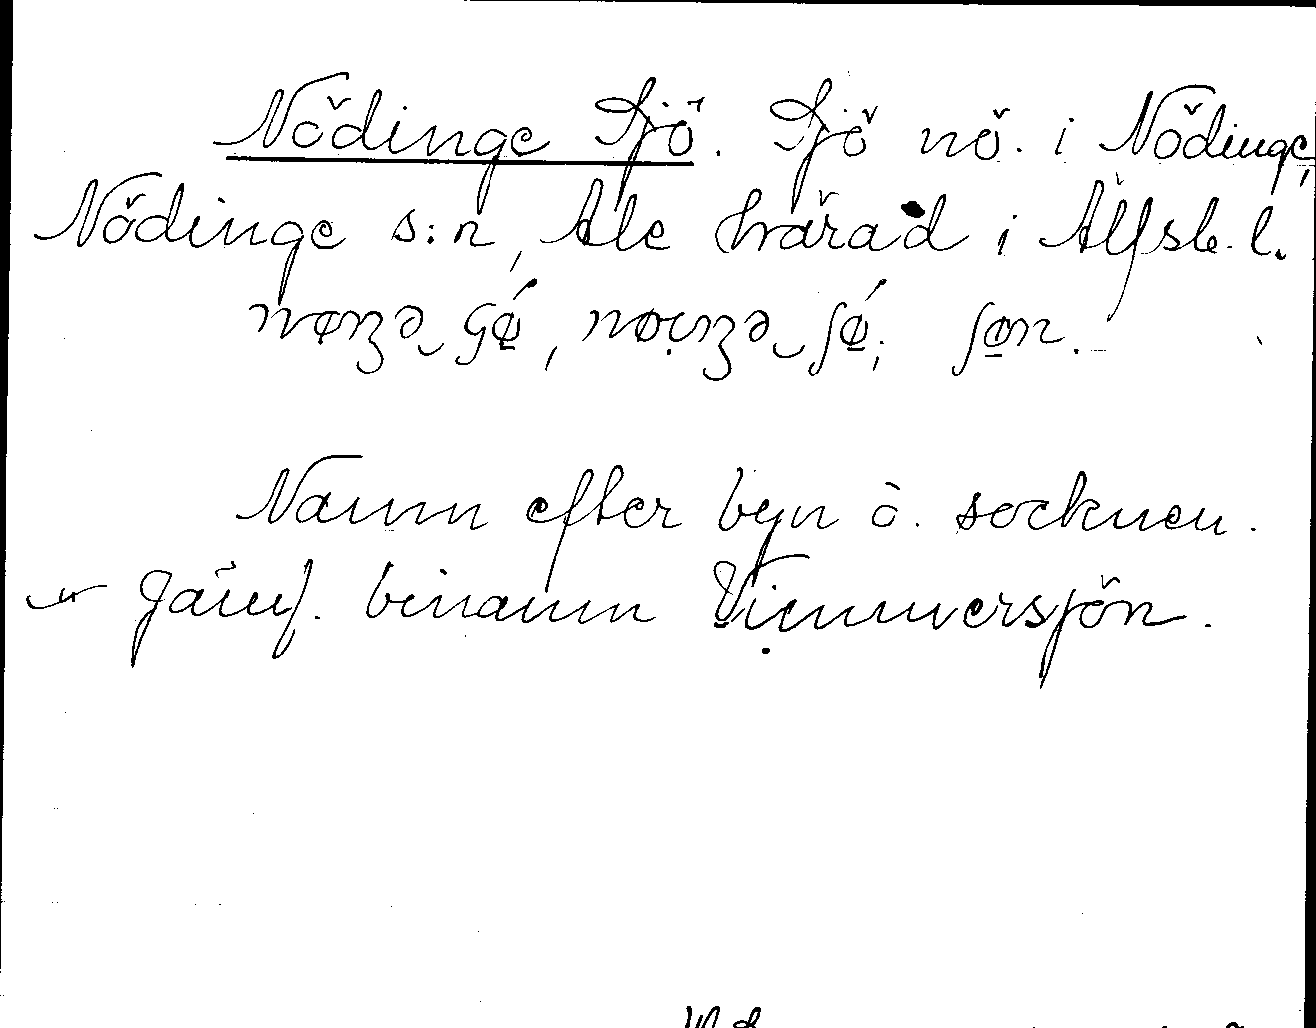 Nödinge Sjö. Sjö nö. i Nödinge,
Nödinge s:n, Ale härad i Älfsb. l.
Namn efter byn o. socknen.
Jämf. binamn Vimmersjön.